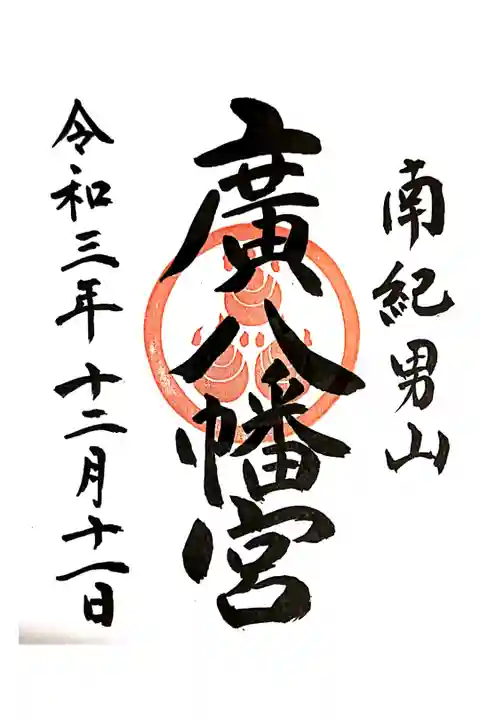 南紀男山
廣八幡宮
令和三年十二月十一日